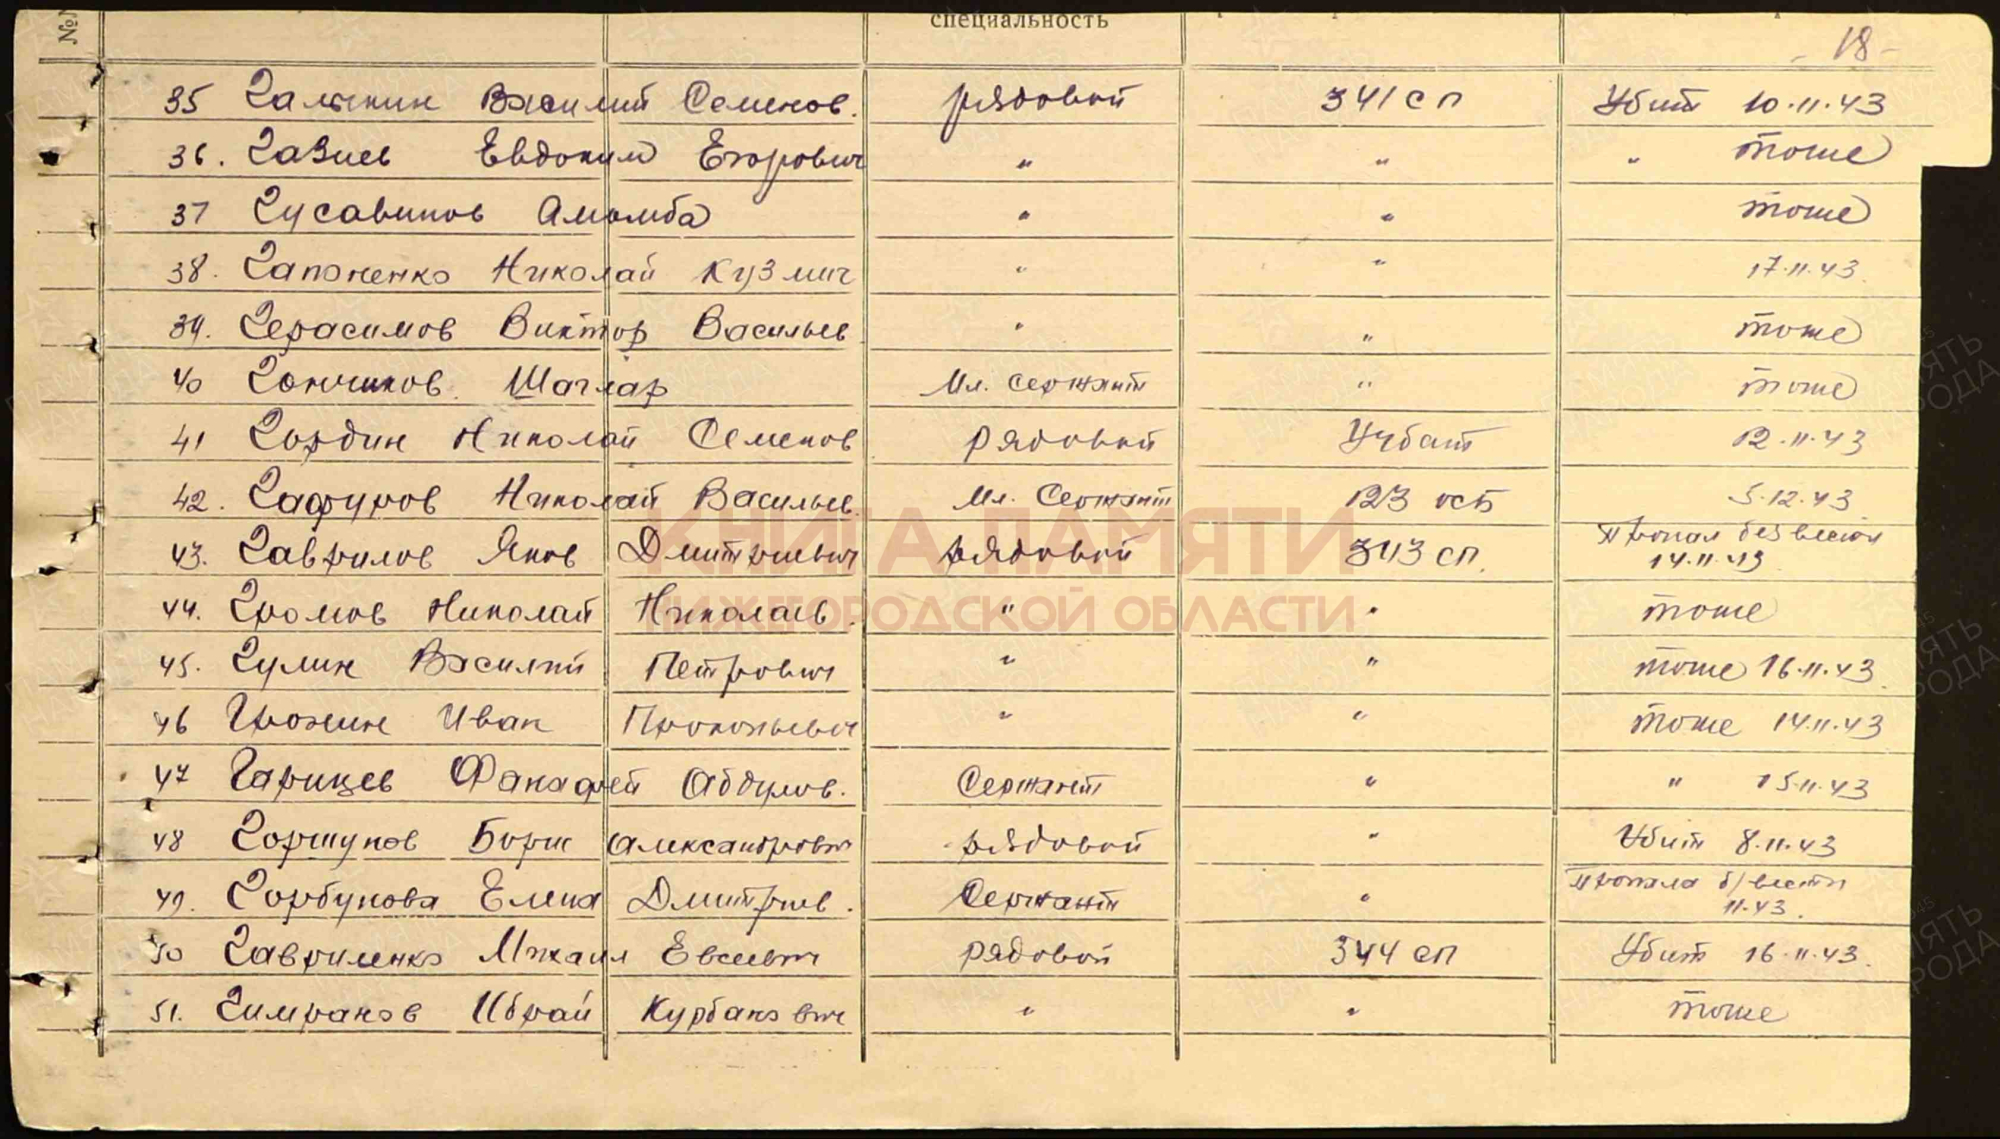 №№
специальность
-18-
35 Галькин Василий Семенов. рядовой 341 сп Убит 10.11.43
36. Газиев Евдоким Егорович " " " тоже
37 Гусавинов " " тоже
38. Гапоненко Николай Кузмич " " 17.11.43
39. Герасимов Виктор Васильев " " тоже
40 Гончиков Шаглар Мл. сержант " тоже
41 Гордин Николай Семенов рядовой Учбат 12.11.43
42. Гафуров Николай Васильев. Мл. Сержант 123 осб 5.12.43
43. Гаврилов Яков Дмитриевич рядовой 343 сп. Пропал без вести
14.11.43
44. Громов Николай Николаев. " " тоже
45. Гулин Василий Петрович " " тоже 16.11.43
46 Грожин Иван Прокопьевич " " тоже 14.11.43
47 Гарицев Фанафей Абдулов. Сержант " " 15.11.43
48 Горшунов Борис Александрович рядовой " Убит 8.11.43
49. Горбунова Елена Дмитриев. Сержант " Пропала б/вести
11.43.
50 Гавриленко Михаил Евсеевич рядовой 344 сп Убит 16.11.43.
51. Гимранов Ибрай Курбанович " " тоже
КНИГА ПАМЯТИ
НИЖЕГОРОДСКОЙ ОБЛАСТИ